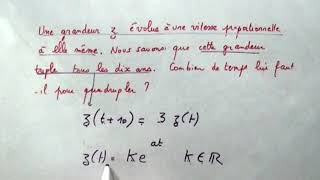 Une grandeur z évolue à une vitesse proportionnelle
à elle même. Nous savons que cette grandeur
triple tous les dix ans. Combien de temps lui faut
-il pour quadrupler ?
z(t+10) = 3 z(t)
z(t) = K e^{at} K ∈ ℝ